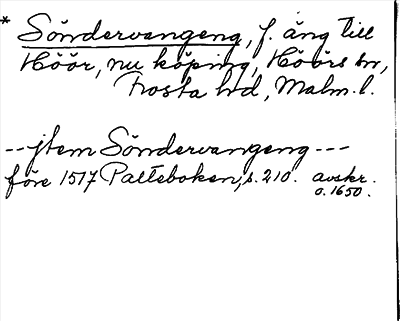 * Söndervangeng, f. äng till
Höör, nu köping, Höörs sn,
Frosta hd, Malm. l.
-- jtem Söndervangeng ---
före 1517 Palteboken, s. 210. avskr.
o. 1650.